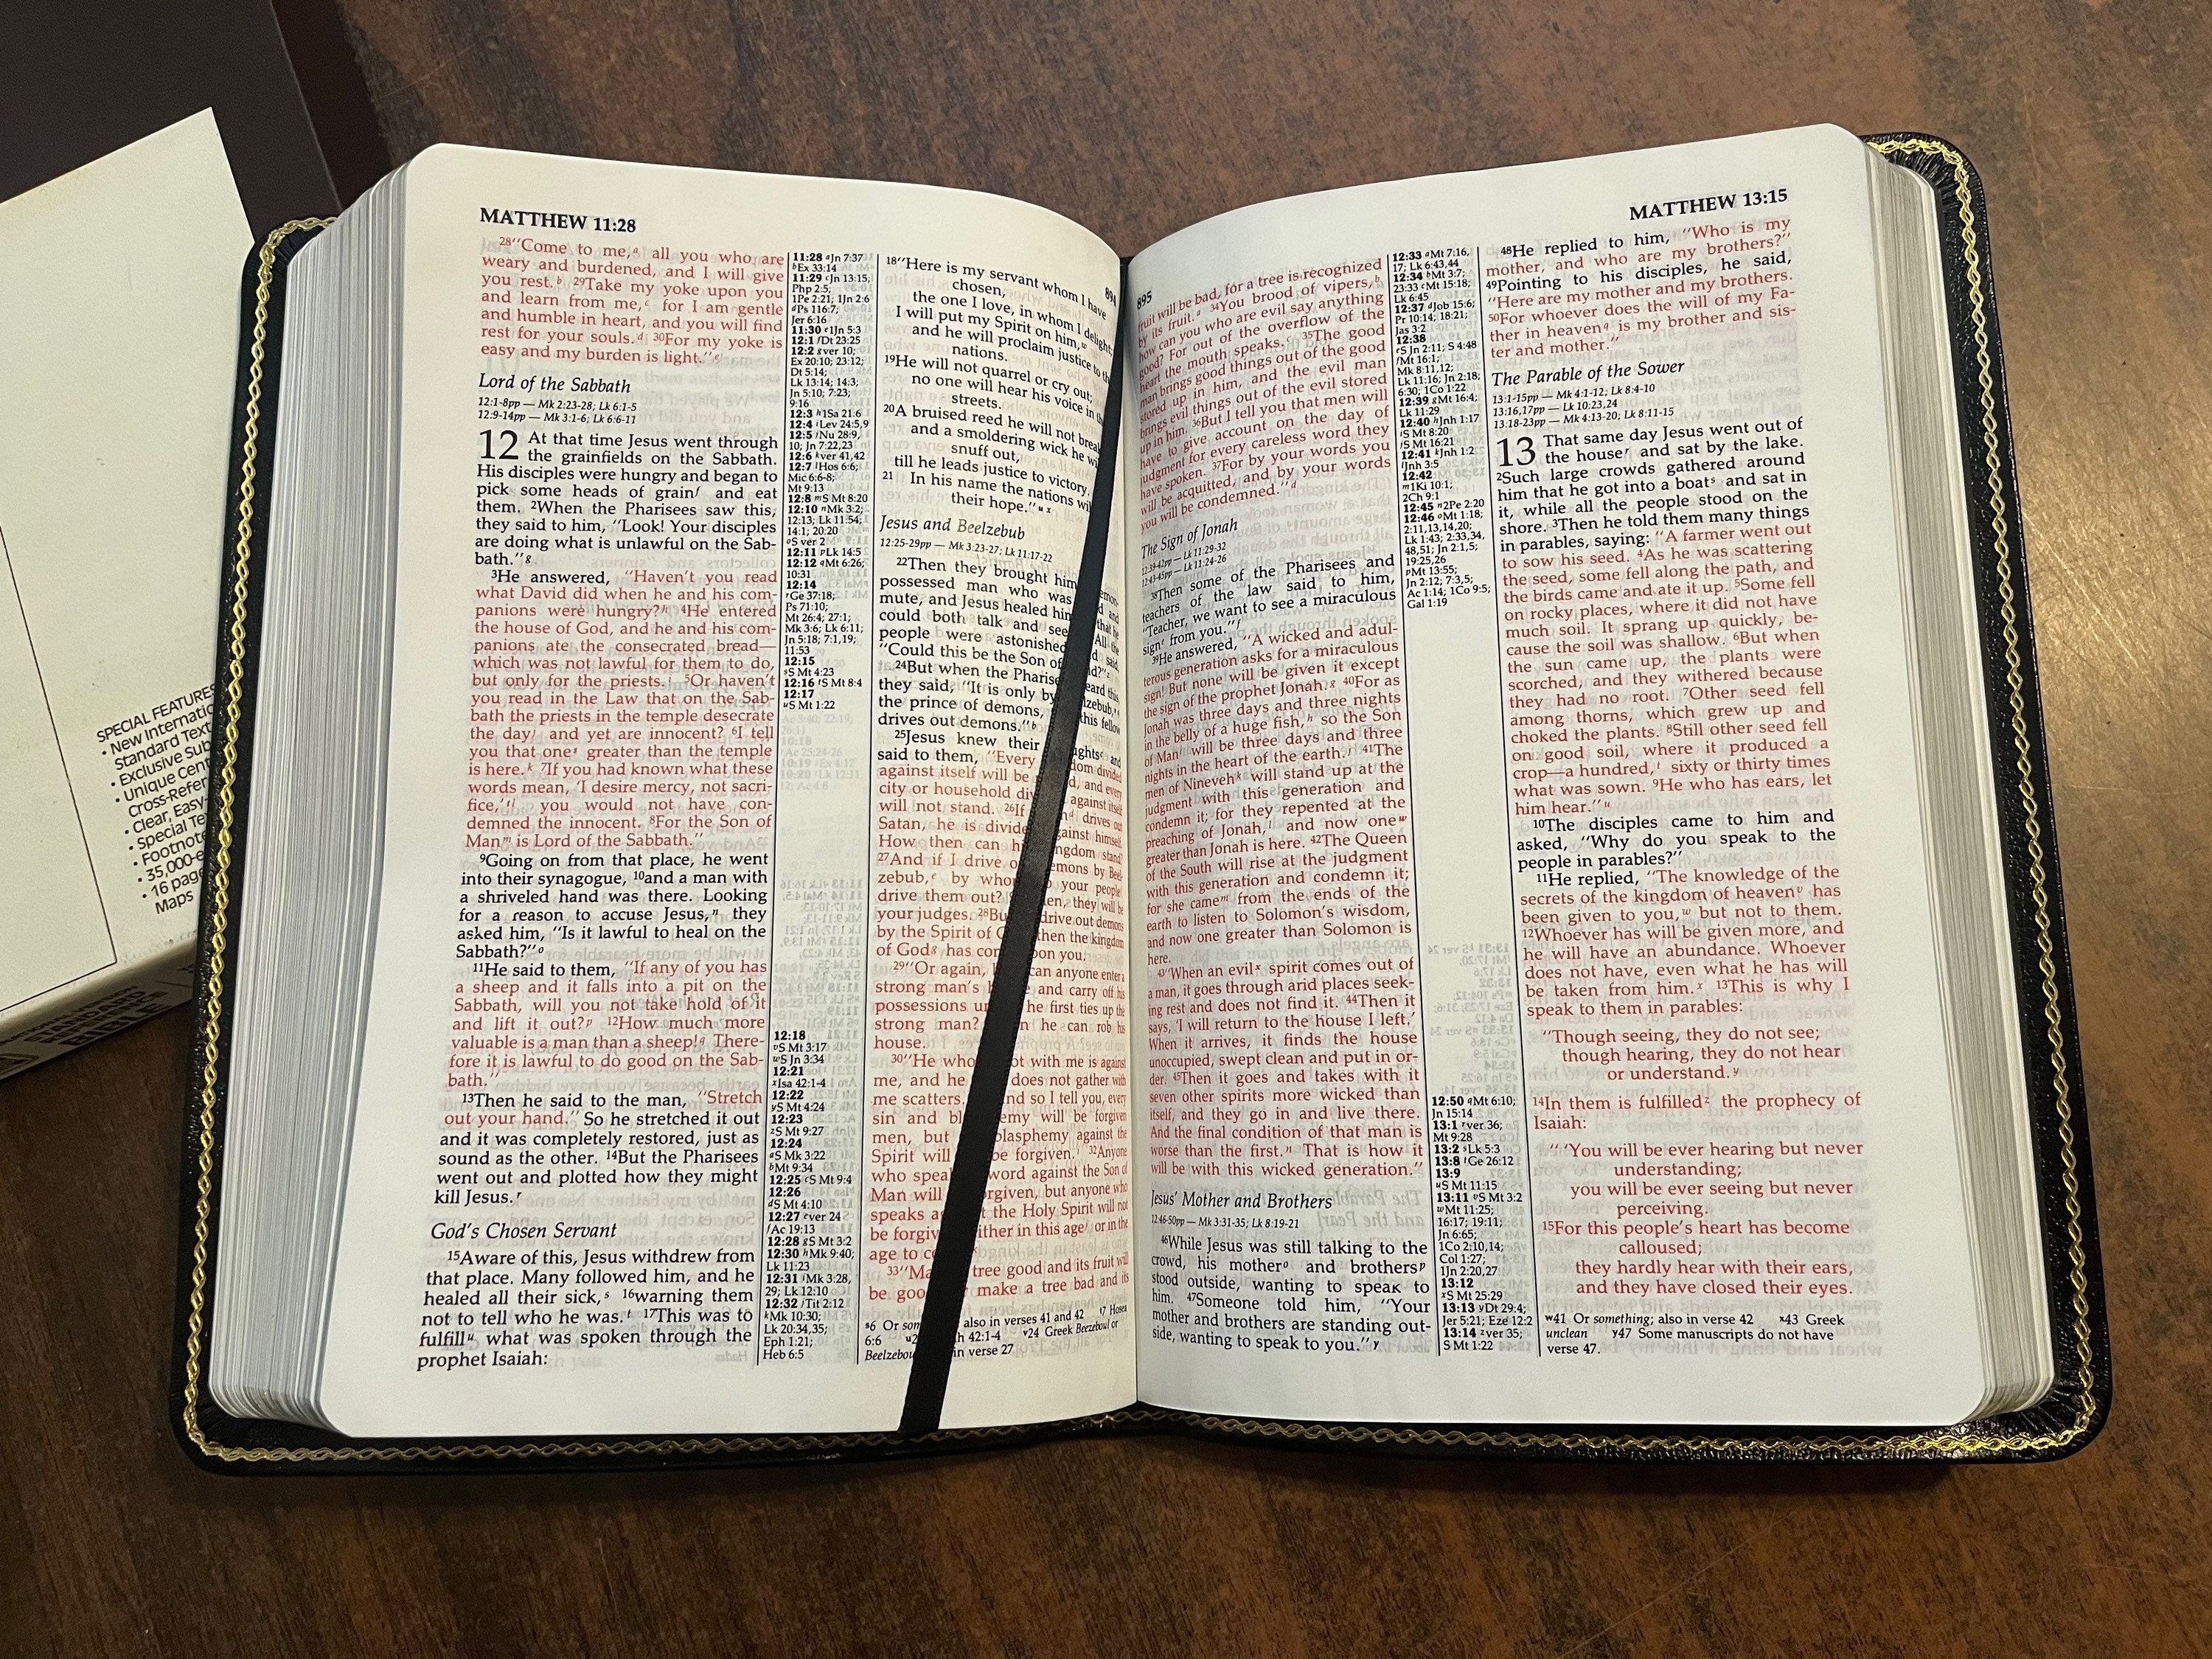 SPECIAL FEATURES
• New Internatio
Standard Text
• Exclusive Sub
• Unique Cent
Cross-Refer
• Clear, Easy-
• Special Te
• Footnote
• 35,000-e
• 16 page
Maps
MATTHEW 11:28
28“Come to me,a all you who are
weary and burdened, and I will give
you rest.b 29Take my yoke upon you
and learn from me,c for I am gentle
and humble in heart, and you will find
rest for your souls.d 30For my yoke is
easy and my burden is light.”e
Lord of the Sabbath
12:1-8pp — Mk 2:23-28; Lk 6:1-5
12:9-14pp — Mk 3:1-6; Lk 6:6-11
12 At that time Jesus went through
the grainfields on the Sabbath.
His disciples were hungry and began to
pick some heads of grainf and eat
them. 2When the Pharisees saw this,
they said to him, “Look! Your disciples
are doing what is unlawful on the Sab-
bath.”g
3He answered, “Haven’t you read
what David did when he and his com-
panions were hungry?h 4He entered
the house of God, and he and his com-
panions ate the consecrated bread—
which was not lawful for them to do,
but only for the priests.i 5Or haven’t
you read in the Law that on the Sab-
bath the priests in the temple desecrate
the dayj and yet are innocent? 6I tell
you that ones greater than the temple
is here.k 7If you had known what these
words mean, ‘I desire mercy, not sacri-
fice,’tl you would not have con-
demned the innocent. 8For the Son of
Manm is Lord of the Sabbath.”
9Going on from that place, he went
into their synagogue, 10and a man with
a shriveled hand was there. Looking
for a reason to accuse Jesus,n they
asked him, “Is it lawful to heal on the
Sabbath?”o
11He said to them, “If any of you has
a sheep and it falls into a pit on the
Sabbath, will you not take hold of it
and lift it out?p 12How much more
valuable is a man than a sheep!q There-
fore it is lawful to do good on the Sab-
bath.”
13Then he said to the man, “Stretch
out your hand.” So he stretched it out
and it was completely restored, just as
sound as the other. 14But the Pharisees
went out and plotted how they might
kill Jesus.r
God’s Chosen Servant
15Aware of this, Jesus withdrew from
that place. Many followed him, and he
healed all their sick,s 16warning them
not to tell who he was.t 17This was to
fulfillu what was spoken through the
prophet Isaiah:
11:28 aJn 7:37
bEx 33:14
11:29 cJn 13:15;
Php 2:5;
1Pe 2:21; 1Jn 2:6
dPs 116:7;
Jer 6:16
11:30 e1Jn 5:3
12:1 fDt 23:25
12:2 gver 10;
Ex 20:10; 23:12;
Dt 5:14;
Lk 13:14; 14:3;
Jn 5:10; 7:23;
9:16
12:3 h1Sa 21:6
12:4 iLev 24:5,9
12:5 jNu 28:9,
10; Jn 7:22,23
12:6 kver 41,42
12:7 lHos 6:6;
Mic 6:6-8;
Mt 9:13
12:8 mS Mt 8:20
12:10 nMk 3:2;
12:13; Lk 11:54;
14:1; 20:20
oS ver 2
12:11 pLk 14:5
12:12 qMt 6:26;
10:31
12:14
rGe 37:18;
Ps 71:10;
Mt 26:4; 27:1;
Mk 3:6; Lk 6:11;
Jn 5:18; 7:1,19;
11:53
12:15
sS Mt 4:23
12:16 tS Mt 8:4
12:17
uS Mt 1:22
12:18
vS Mt 3:17
wS Jn 3:34
12:21
xIsa 42:1-4
12:22
yS Mt 4:24
12:23
zS Mt 9:27
12:24
aS Mk 3:22
bMt 9:34
12:25 cS Mt 9:4
12:26
dS Mt 4:10
12:27 ever 24
fAc 19:13
12:28 gS Mt 3:2
12:30 hMk 9:40;
Lk 11:23
12:31 iMk 3:28,
29; Lk 12:10
12:32 jTit 2:12
kMk 10:30;
Lk 20:34,35;
Eph 1:21;
Heb 6:5
894
18“Here is my servant whom I have
chosen,
the one I love, in whom I delight;
I will put my Spirit on him,w
and he will proclaim justice to the
nations.
19He will not quarrel or cry out;
no one will hear his voice in the
streets.
20A bruised reed he will not break,
and a smoldering wick he will
snuff out,
till he leads justice to victory.
21 In his name the nations will
their hope.”u x
Jesus and Beelzebub
12:25-29pp — Mk 3:23-27; Lk 11:17-22
22Then they brought him demon-
possessed man who was and
mute, and Jesus healed him that he
could both talk and see All the
people were astonished d said,
“Could this be the Son of id?”z
24But when the Pharise eard this,
they said, “It is only by lzebub,a
the prince of demons, this fellow
drives out demons.”b
25Jesus knew their ughtsc and
said to them, “Every dom divided
against itself will be d, and every
city or household div against itself
will not stand. 26If d drives out
Satan, he is divide gainst himself.
How then can h ngdom stand?
27And if I drive o emons by Beel-
zebub,e by who your people
drive them out? en, they will be
your judges. 28Bu drive out demons
by the Spirit of G then the kingdom
of Godg has con pon you.
29“Or again, can anyone enter a
strong man’s and carry off his
possessions u he first ties up the
strong man? n he can rob his
house.
30“He who ot with me is against
me, and he does not gather with
me scatters. nd so I tell you, every
sin and bl emy will be forgiven
men, but blasphemy against the
Spirit will be forgiven.i 32Anyone
who speak word against the Son of
Man will orgiven, but anyone who
speaks ag t the Holy Spirit will not
be forgiv ither in this agej or in the
age to co
33“Ma tree good and its fruit will
be goo make a tree bad and its
s6 Or som also in verses 41 and 42 t7 Hosea
6:6 u2 h 42:1-4 v24 Greek Beezeboul or
Beelzebou in verse 27
895
MATTHEW 13:15
fruit will be bad, for a tree is recognized
by its fruit.a 34You brood of vipers,b
how can you who are evil say anything
good? For out of the overflow of the
heart the mouth speaks.c 35The good
man brings good things out of the good
stored up in him, and the evil man
brings evil things out of the evil stored
up in him. 36But I tell you that men will
have to give account on the day of
judgment for every careless word they
have spoken. 37For by your words you
will be acquitted, and by your words
you will be condemned.”d
The Sign of Jonah
12:39-42pp — Lk 11:29-32
12:43-45pp — Lk 11:24-26
38Then some of the Pharisees and
teachers of the law said to him,
“Teacher, we want to see a miraculous
signe from you.”f
39He answered, “A wicked and adul-
terous generation asks for a miraculous
sign! But none will be given it except
the sign of the prophet Jonah.g 40For as
Jonah was three days and three nights
in the belly of a huge fish,h so the Son
of Mani will be three days and three
nights in the heart of the earth.j 41The
men of Ninevehk will stand up at the
judgment with this generation and
condemn it; for they repented at the
preaching of Jonah,l and now onew
greater than Jonah is here. 42The Queen
of the South will rise at the judgment
with this generation and condemn it;
for she camem from the ends of the
earth to listen to Solomon’s wisdom,
and now one greater than Solomon is
here.
43“When an evilx spirit comes out of
a man, it goes through arid places seek-
ing rest and does not find it. 44Then it
says, ‘I will return to the house I left.’
When it arrives, it finds the house
unoccupied, swept clean and put in or-
der. 45Then it goes and takes with it
seven other spirits more wicked than
itself, and they go in and live there.
And the final condition of that man is
worse than the first.n That is how it
will be with this wicked generation.”
Jesus’ Mother and Brothers
12:46-50pp — Mk 3:31-35; Lk 8:19-21
46While Jesus was still talking to the
crowd, his mothero and brothersp
stood outside, wanting to speak to
him. 47Someone told him, “Your
mother and brothers are standing out-
side, wanting to speak to you.”y
12:33 aMt 7:16,
17; Lk 6:43,44
12:34 bMt 3:7;
23:33 cMt 15:18;
Lk 6:45
12:37 dJob 15:6;
Pr 10:14; 18:21;
Jas 3:2
12:38
eS Jn 2:11; S 4:48
fMt 16:1;
Mk 8:11,12;
Lk 11:16; Jn 2:18;
6:30; 1Co 1:22
12:39 gMt 16:4;
Lk 11:29
12:40 hJnh 1:17
iS Mt 8:20
jS Mt 16:21
12:41 kJnh 1:2
lJnh 3:5
12:42
m1Ki 10:1;
2Ch 9:1
12:45 n2Pe 2:20
12:46 oMt 1:18;
2:11,13,14,20;
Lk 1:43; 2:33,34,
48,51; Jn 2:1,5;
19:25,26
pMt 13:55;
Jn 2:12; 7:3,5;
Ac 1:14; 1Co 9:5;
Gal 1:19
12:50 qMt 6:10;
Jn 15:14
13:1 rver 36;
Mt 9:28
13:2 sLk 5:3
13:8 tGe 26:12
13:9
uS Mt 11:15
13:11 vS Mt 3:2
wMt 11:25;
16:17; 19:11;
Jn 6:65;
1Co 2:10,14;
Col 1:27;
1Jn 2:20,27
13:12
xS Mt 25:29
13:13 yDt 29:4;
Jer 5:21; Eze 12:2
13:14 zver 35;
S Mt 1:22
48He replied to him, “Who is my
mother, and who are my brothers?”
49Pointing to his disciples, he said,
“Here are my mother and my brothers.
50For whoever does the will of my Fa-
ther in heavenq is my brother and sis-
ter and mother.”
The Parable of the Sower
13:1-15pp — Mk 4:1-12; Lk 8:4-10
13:16,17pp — Lk 10:23,24
13:18-23pp — Mk 4:13-20; Lk 8:11-15
13 That same day Jesus went out of
the houser and sat by the lake.
2Such large crowds gathered around
him that he got into a boats and sat in
it, while all the people stood on the
shore. 3Then he told them many things
in parables, saying: “A farmer went out
to sow his seed. 4As he was scattering
the seed, some fell along the path, and
the birds came and ate it up. 5Some fell
on rocky places, where it did not have
much soil. It sprang up quickly, be-
cause the soil was shallow. 6But when
the sun came up, the plants were
scorched, and they withered because
they had no root. 7Other seed fell
among thorns, which grew up and
choked the plants. 8Still other seed fell
on good soil, where it produced a
crop—a hundred,t sixty or thirty times
what was sown. 9He who has ears, let
him hear.”u
10The disciples came to him and
asked, “Why do you speak to the
people in parables?”
11He replied, “The knowledge of the
secrets of the kingdom of heavenv has
been given to you,w but not to them.
12Whoever has will be given more, and
he will have an abundance. Whoever
does not have, even what he has will
be taken from him.x 13This is why I
speak to them in parables:
“Though seeing, they do not see;
though hearing, they do not hear
or understand.y
14In them is fulfilledz the prophecy of
Isaiah:
“ ‘You will be ever hearing but never
understanding;
you will be ever seeing but never
perceiving.
15For this people’s heart has become
calloused;
they hardly hear with their ears,
and they have closed their eyes.
w41 Or something; also in verse 42 x43 Greek
unclean y47 Some manuscripts do not have
verse 47.